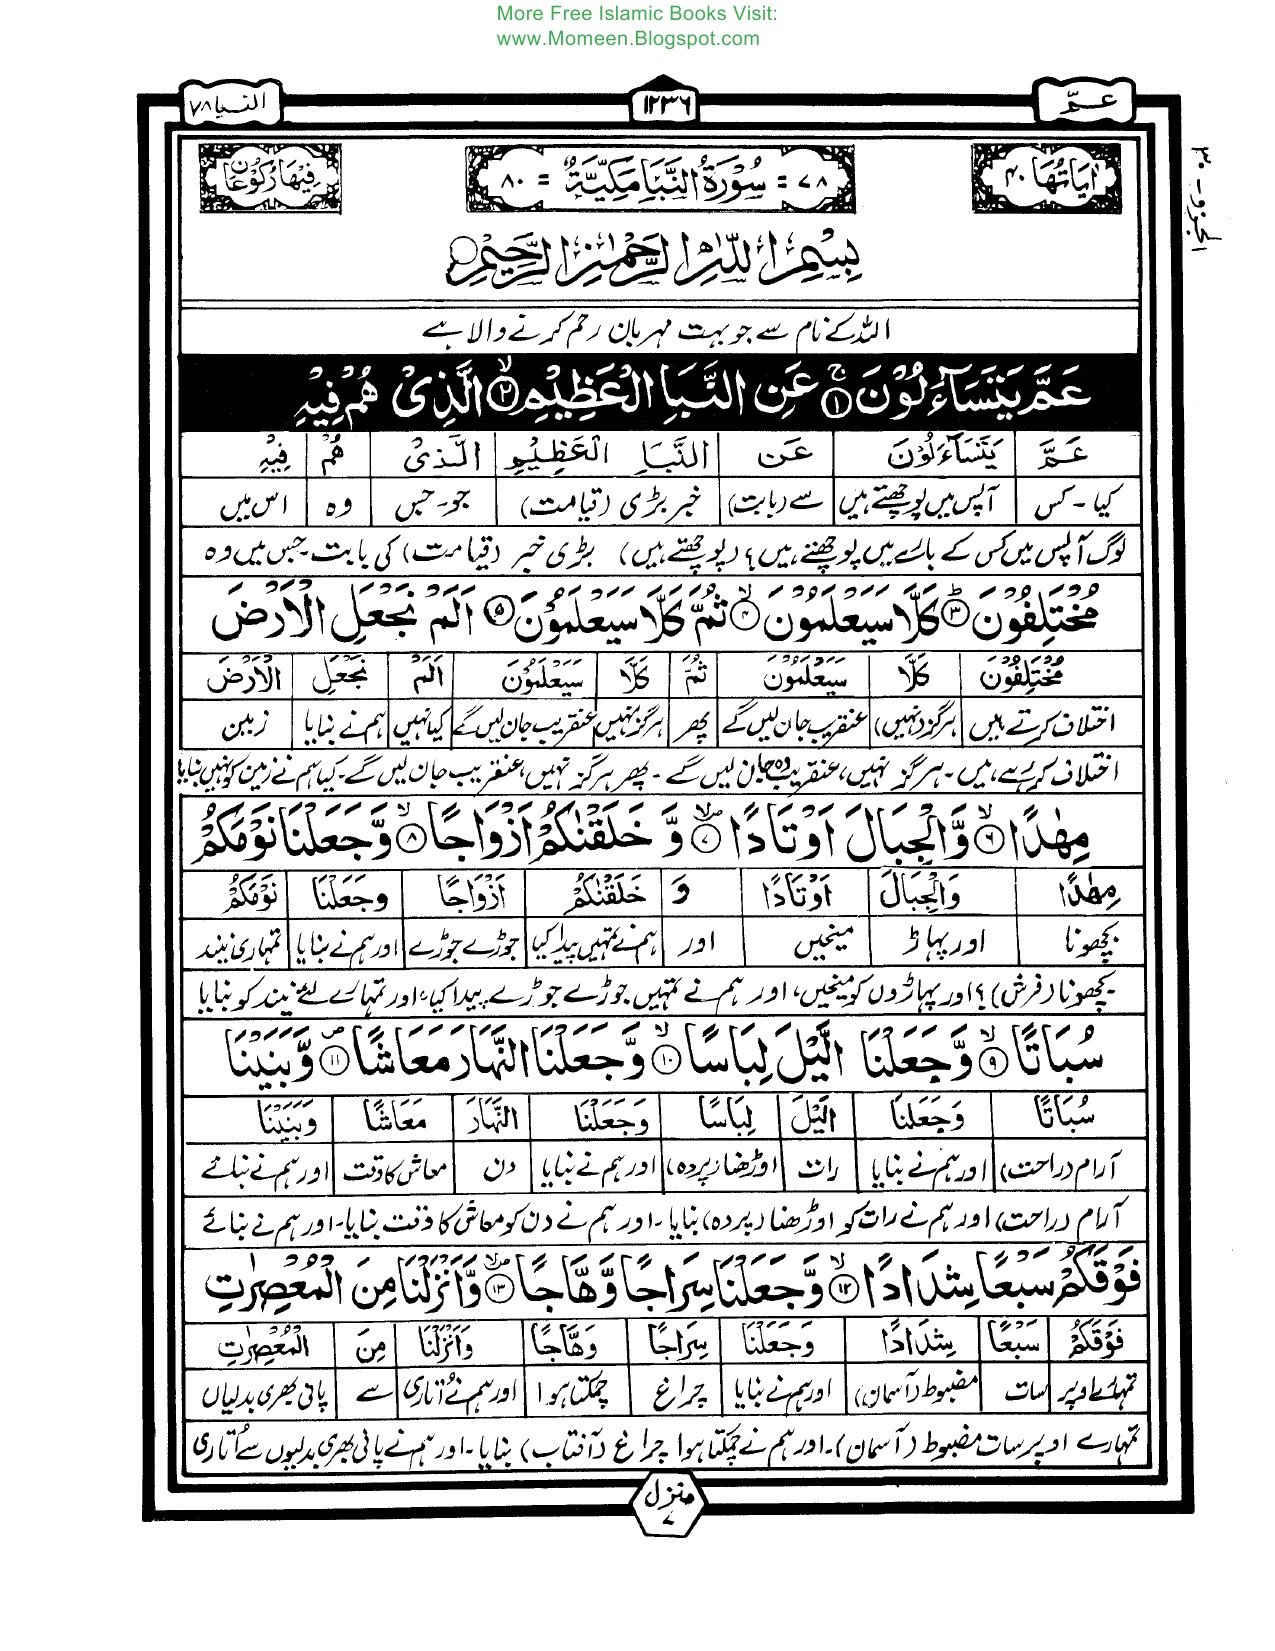 More Free Islamic Books Visit:
www.Momeen.Blogspot.com
عمّ ١٢٣٦ النبا ٧٨
الجزو - ٣٠
اٰیَاتُهَا ٤٠ ٧٨ = سُوْرَةُ النَّبَاِ مَكِّيَّةٌ = ٨٠ فِيْهَا رُكُوْعَانِ
بِسْمِ اللّٰهِ الرَّحْمٰنِ الرَّحِيْمِ
اللہ کے نام سے جو بہت مہربان رحم کرنے والا ہے
عَمَّ يَتَسَآءَلُوْنَ ۚ ١ عَنِ النَّبَاِ الْعَظِيْمِ ۙ ٢ الَّذِىْ هُمْ فِيْهِ
عَمَّ يَتَسَآءَلُوْنَ عَنِ النَّبَاِ الْعَظِيْمِ الَّذِىْ هُمْ فِيْهِ
کیا - کس آپس میں پوچھتے ہیں سے (بابت) خبر بڑی (قیامت) جو - جس وہ اس میں
لوگ آپس میں کس کے بارے میں پوچھتے ہیں؟ (پوچھتے ہیں) بڑی خبر (قیامت) کی بابت - جس میں وہ
مُخْتَلِفُوْنَ ؕ ٣ كَلَّا سَيَعْلَمُوْنَ ۙ ٤ ثُمَّ كَلَّا سَيَعْلَمُوْنَ ٥ اَلَمْ نَجْعَلِ الْاَرْضَ
مُخْتَلِفُوْنَ كَلَّا سَيَعْلَمُوْنَ ثُمَّ كَلَّا سَيَعْلَمُوْنَ اَلَمْ نَجْعَلِ الْاَرْضَ
اختلاف کرتے ہیں ہرگز (نہیں) عنقریب جان لیں گے پھر ہرگز نہیں عنقریب جان لیں گے کیا نہیں ہم نے بنایا زمین
اختلاف کر رہے ہیں - ہرگز نہیں، عنقریب وہ جان لیں گے - پھر ہرگز نہیں، عنقریب جان لیں گے - کیا ہم نے زمین کو نہیں بنایا
مِهٰدًا ۙ ٦ وَّالْجِبَالَ اَوْتَادًا ۙ ٧ وَّ خَلَقْنٰكُمْ اَزْوَاجًا ۙ ٨ وَّجَعَلْنَا نَوْمَكُمْ
مِهٰدًا وَالْجِبَالَ اَوْتَادًا وَّ خَلَقْنٰكُمْ اَزْوَاجًا وَجَعَلْنَا نَوْمَكُمْ
بچھونا اور پہاڑ میخیں اور ہم نے تمہیں پیدا کیا جوڑے جوڑے اور ہم نے بنایا تمہاری نیند
بچھونا (فرش)؟ اور پہاڑوں کو میخیں، اور ہم نے تمہیں جوڑے جوڑے پیدا کیا، اور تمہارے لئے نیند کو بنایا
سُبَاتًا ۙ ٩ وَّجَعَلْنَا الَّيْلَ لِبَاسًا ۙ ١٠ وَّجَعَلْنَا النَّهَارَ مَعَاشًا ۪ ١١ وَّبَنَيْنَا
سُبَاتًا وَجَعَلْنَا الَّيْلَ لِبَاسًا وَجَعَلْنَا النَّهَارَ مَعَاشًا وَبَنَيْنَا
آرام (راحت) اور ہم نے بنایا رات اوڑھنا (پردہ) اور ہم نے بنایا دن معاش کا وقت اور ہم نے بنائے
آرام (راحت) اور ہم نے رات کو اوڑھنا (پردہ) بنایا - اور ہم نے دن کو معاش کا وقت بنایا - اور ہم نے بنائے
فَوْقَكُمْ سَبْعًا شِدَادًا ۙ ١٢ وَّجَعَلْنَا سِرَاجًا وَّهَّاجًا ۙ ١٣ وَّاَنْزَلْنَا مِنَ الْمُعْصِرٰتِ
فَوْقَكُمْ سَبْعًا شِدَادًا وَجَعَلْنَا سِرَاجًا وَهَّاجًا وَاَنْزَلْنَا مِنَ الْمُعْصِرٰتِ
تمہارے اوپر سات مضبوط (آسمان) اور ہم نے بنایا چراغ چمکتا ہوا اور ہم نے اتاری سے پانی بھری بدلیاں
تمہارے اوپر سات مضبوط (آسمان) - اور ہم نے چمکتا ہوا چراغ (آفتاب) بنایا - اور ہم نے پانی بھری بدلیوں سے اتاری
منزل ٧